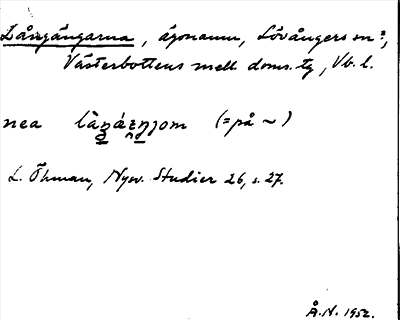 Långängarna, ägonamn, Lövångers sn?,
Västerbottens mell. doms. tg, Vb. l.
nea (= på ~)
L. Öhman, Nysv. Studier 26, s. 27.
Å. N. 1952.